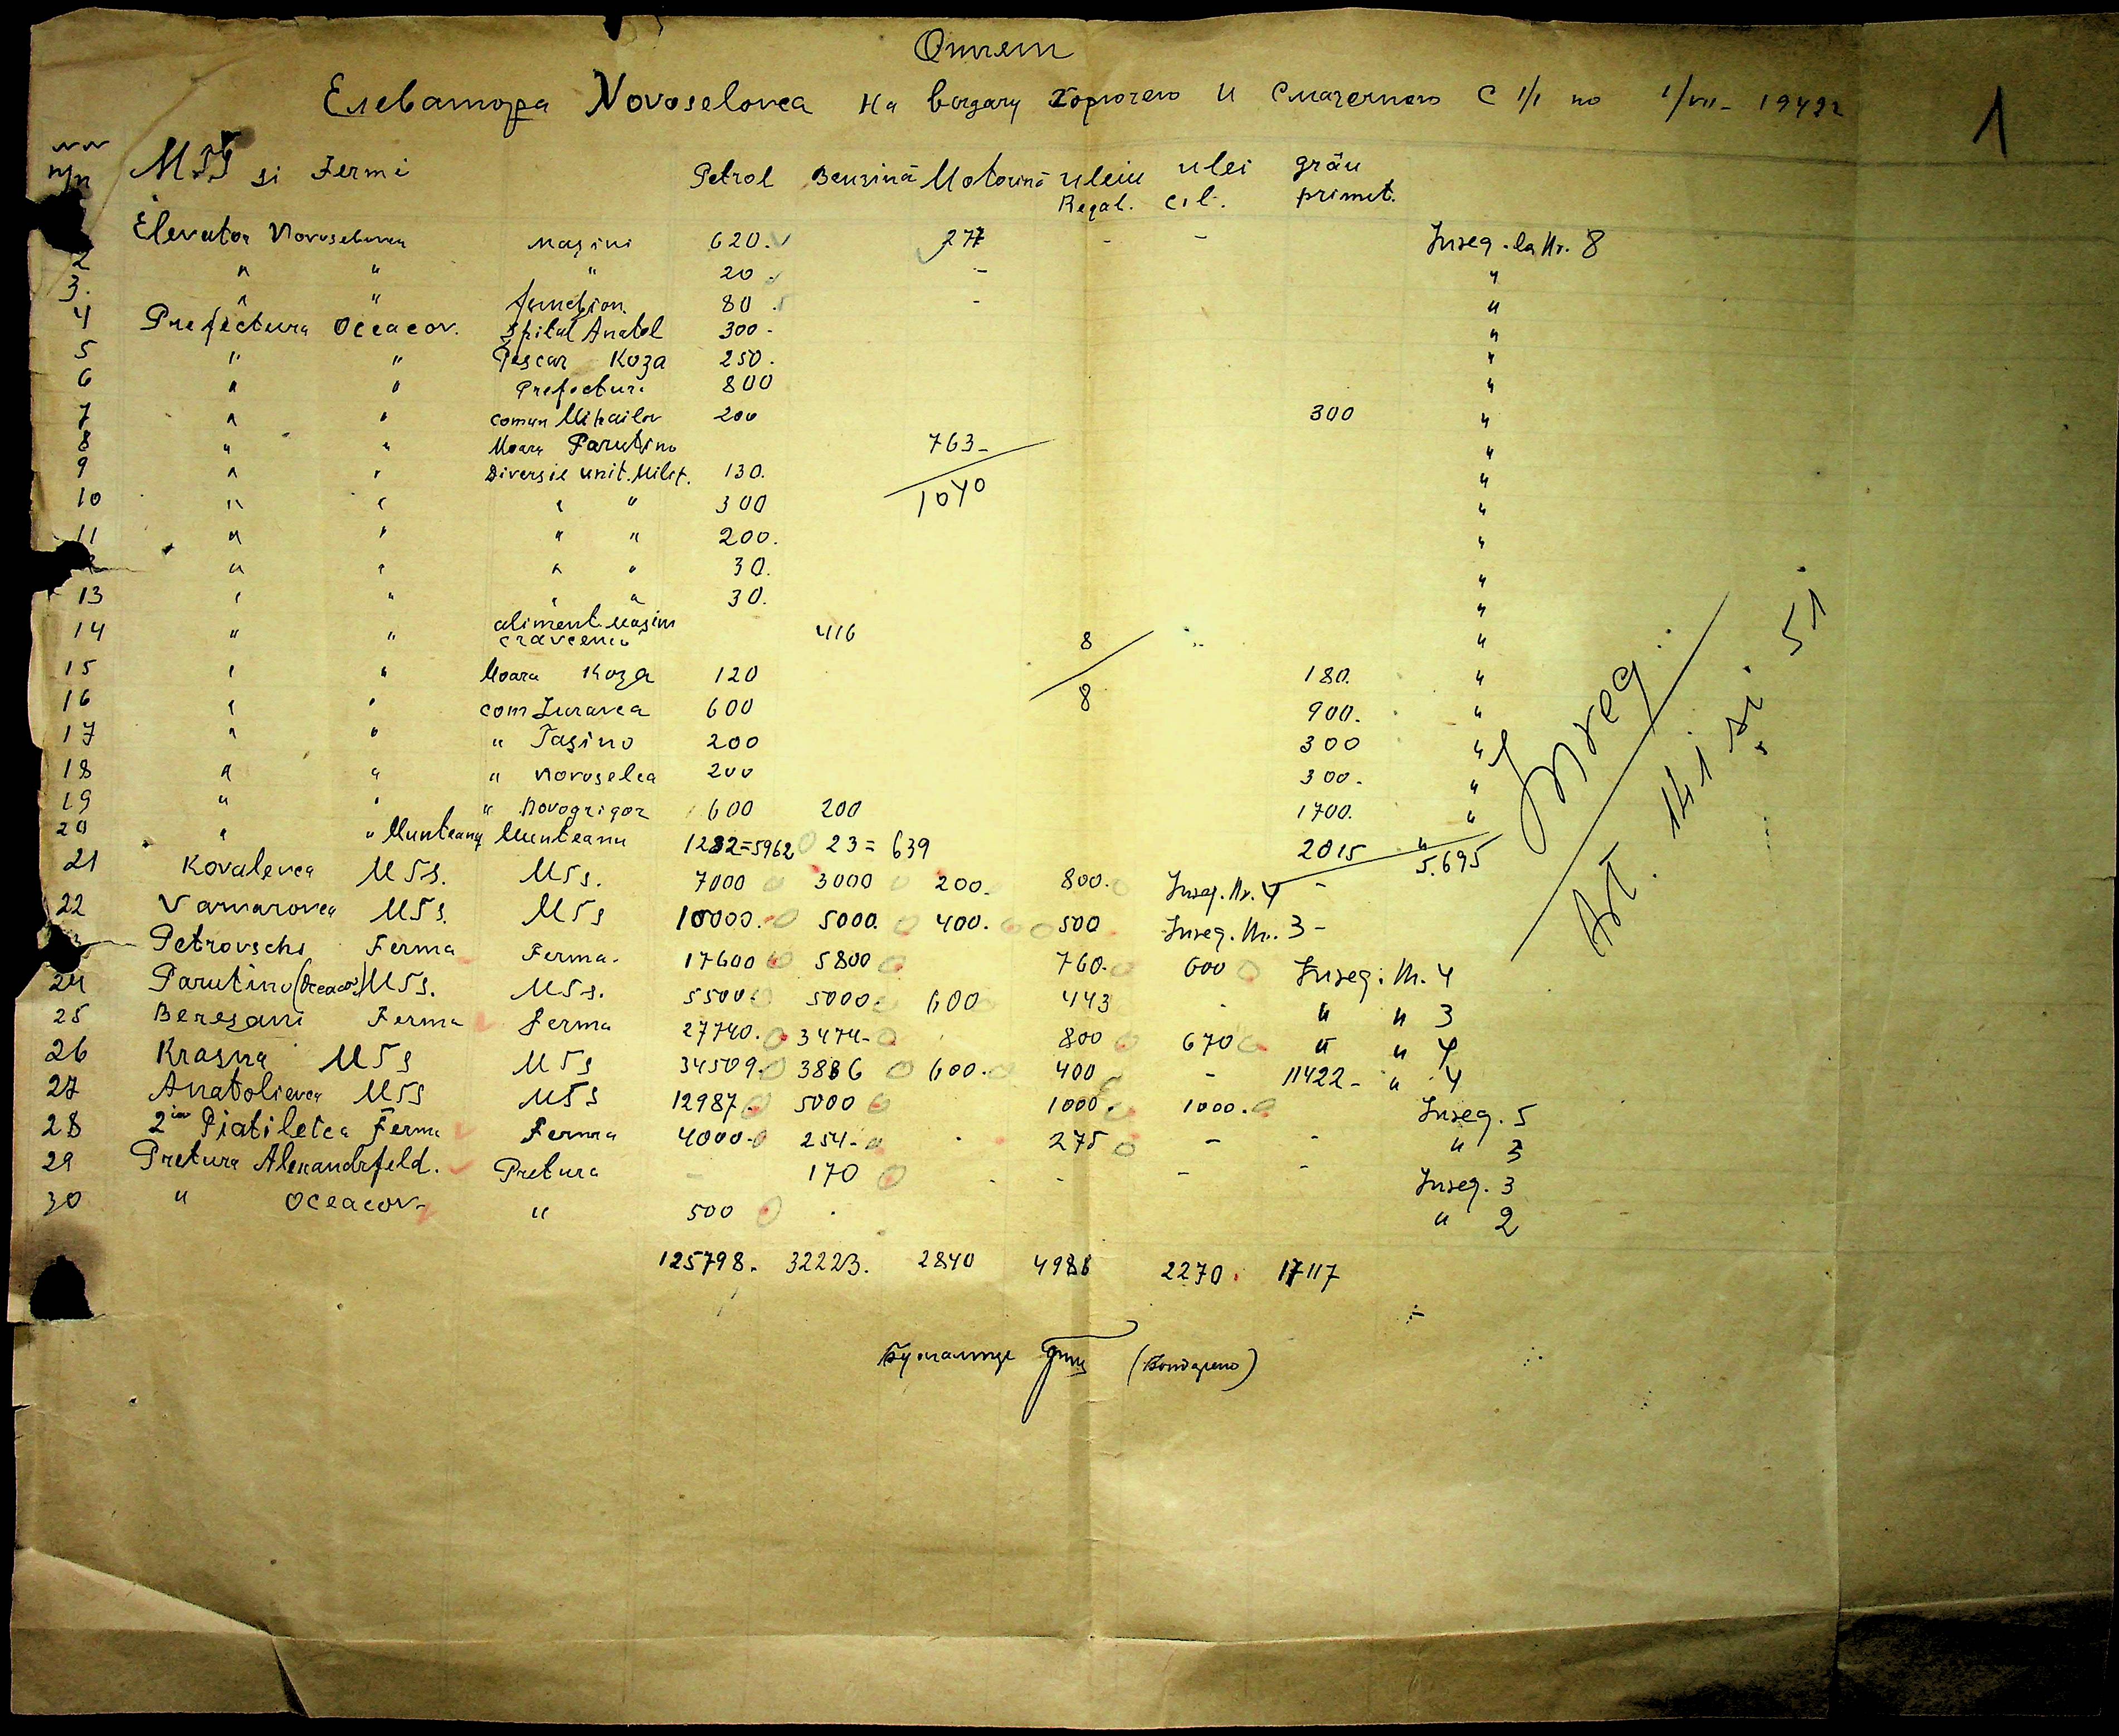 Отчет
Елеватора Novoselovca На выдачу Горючего и Смазочного С 1/I по 1/VII - 1942г
1
№№ п/п MTS si Fermi Petrol Benzină Motorină uleiu Regal. ulei cil. grâu primit.
Elevator Novoselovca Mașini 620. 277 - - Inreg. la Nr. 8
2 " " " 20 - "
3. " " funcțion. 80 - "
4 Prefectura Oceacov. Spital Anatol 300 - "
5 " " Pescar Koza 250. "
6 " " Prefectura 800 "
7 " " comun Mihailov 200 300 "
8 " " Moara Parutino 763 - "
9 " " Diversie unit. Milit. 130. "
1040
10 " " " " 300 "
11 " " " " 200. "
" " " " 30. "
13 " " " " 30. "
14 " " aliment. Mașini cravcenco 416 8 "
15 " " Moara Koza 120 180. "
8
16 " " com Juravca 600 900. "
17 " " " Tașino 200 300 "
18 " " " Novoselca 200 300. "
19 " " " Novogrigor 600 200 1700. "
20 " " Munteanu Munteanu 1282=5962 23=639 2015 "
5.695
21 Kovalevca MTS. MTS. 7000 3000 200. 800. Inreg. Nr. 4 -
22 Varvarovca MTS. MTS 10000. 5000. 400. 500 Inreg. Nr. 3 -
Petrovschi Ferma Ferma. 17600 5800 760. 600 Inreg. Nr. 4
24 Parutino (Oceacov) MTS. MTS. 5500 5000 600 443 - " " 3
25 Beresani Ferma Ferma 27740. 3474 - 800 670 " " 4
26 Krasna MTS MTS 34509. 3886 600. 400 - 11422 - " 4
27 Anatolievca MTS MTS 12987. 5000 1000. 1000. Inreg. 5
28 2ia Piatiletca Ferma Ferma 4000 - 254 - 275 - - " 3
29 Pretura Alexandrfeld. Pretura - 170 - - - Inreg. 3
30 " Oceacov - " 500 " 2
125798. 32223. 2840 4986 2270. 17117
Inreg.
Art. 141 si 51
Бухгалтер (Бондаренко)